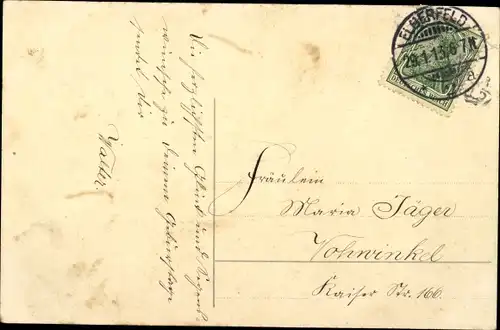 Die herzlichsten Glück und Segens-
wünsche zu Deinem Geburtstage
sendet Dir
Walter.
ELBERFELD
29.1.13.6-7N
Fräulein
Maria Jäger
Vohwinkel
Kaiser Str. 166.